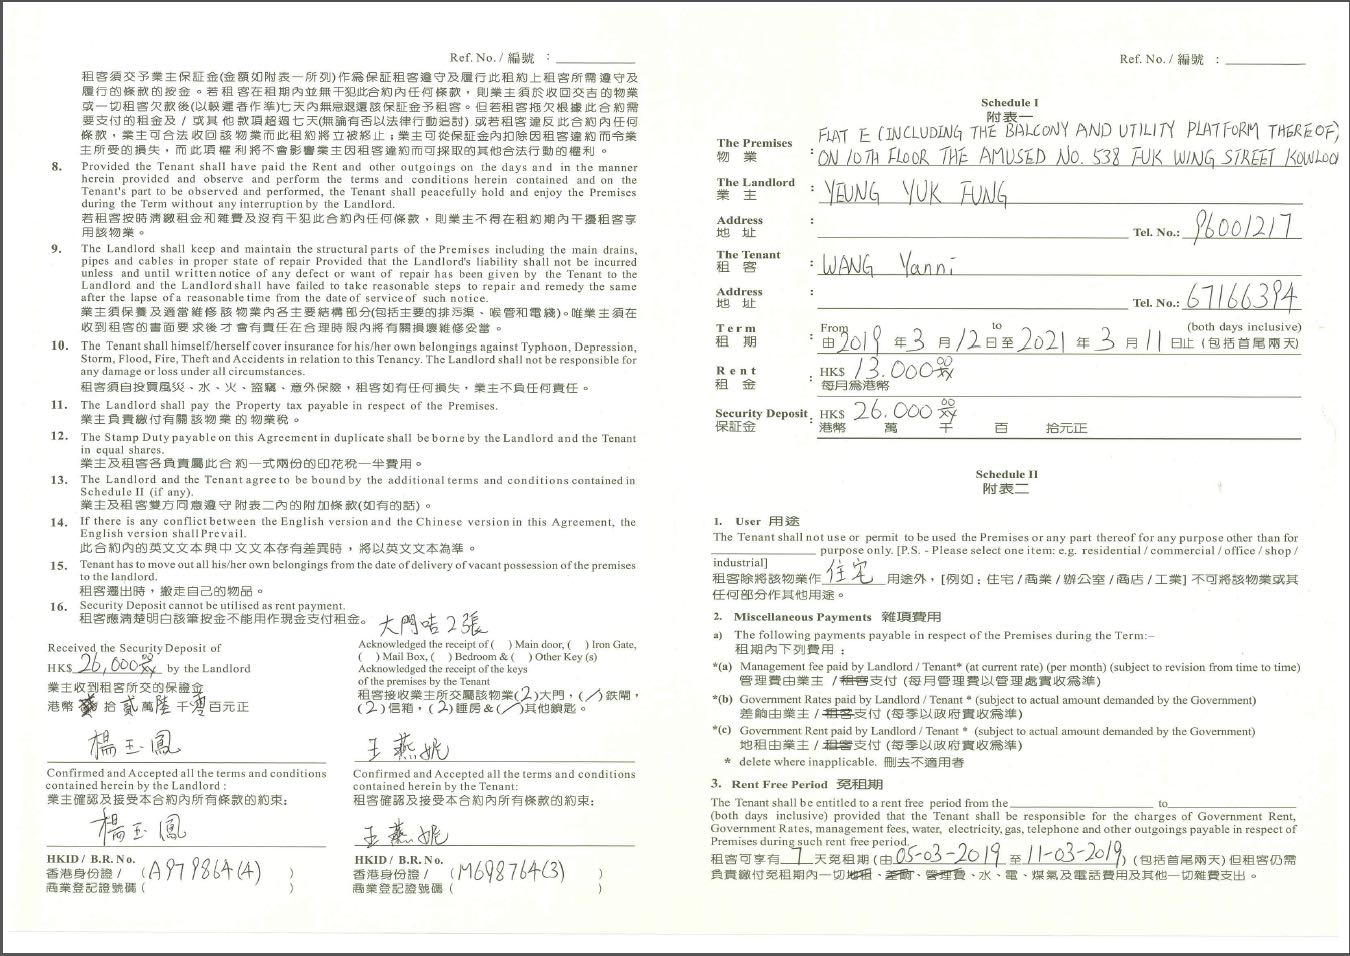 Ref. No. / 編號 ：
租客須交予業主保証金(金額如附表一所列)作為保証租客遵守及履行此租約上租客所需遵守及
履行的條款的按金。若租客在租期內並無干犯此合約內任何條款，則業主須於收回交吉的物業
或一切租客欠款後(以較遲者作準)七天內無息退還該保証金予租客。但若租客拖欠根據此合約需
要支付的租金及 / 或其他款項超過七天(無論有否以法律行動追討) 或若租客違反此合約內任何
條款，業主可合法收回該物業而此租約將立被終止；業主可從保証金內扣除因租客違約而令業
主所受的損失，而此項權利將不會影響業主因租客違約而可採取的其他合法行動的權利。
8. Provided the Tenant shall have paid the Rent and other outgoings on the days and in the manner
herein provided and observe and perform the terms and conditions herein contained and on the
Tenant's part to be observed and performed, the Tenant shall peacefully hold and enjoy the Premises
during the Term without any interruption by the Landlord.
若租客按時清繳租金和雜費及沒有干犯此合約內任何條款，則業主不得在租約期內干擾租客享
用該物業。
9. The Landlord shall keep and maintain the structural parts of the Premises including the main drains,
pipes and cables in proper state of repair Provided that the Landlord's liability shall not be incurred
unless and until written notice of any defect or want of repair has been given by the Tenant to the
Landlord and the Landlord shall have failed to take reasonable steps to repair and remedy the same
after the lapse of a reasonable time from the date of service of such notice.
業主須保養及適當維修該物業內各主要結構部分(包括主要的排污渠、喉管和電綫)。唯業主須在
收到租客的書面要求後才會有責任在合理時限內將有關損壞維修妥當。
10. The Tenant shall himself/herself cover insurance for his/her own belongings against Typhoon, Depression,
Storm, Flood, Fire, Theft and Accidents in relation to this Tenancy. The Landlord shall not be responsible for
any damage or loss under all circumstances.
租客須自按買風災、水、火、盜竊、意外保險，租客如有任何損失，業主不負任何責任。
11. The Landlord shall pay the Property tax payable in respect of the Premises.
業主負責繳付有關該物業的物業稅。
12. The Stamp Duty payable on this Agreement in duplicate shall be borne by the Landlord and the Tenant
in equal shares.
業主及租客各負責屬此合約一式兩份的印花稅一半費用。
13. The Landlord and the Tenant agree to be bound by the additional terms and conditions contained in
Schedule II (if any).
業主及租客雙方同意遵守附表二內的附加條款(如有的話)。
14. If there is any conflict between the English version and the Chinese version in this Agreement, the
English version shall Prevail.
此合約內的英文文本與中文文本存有差異時，將以英文文本為準。
15. Tenant has to move out all his/her own belongings from the date of delivery of vacant possession of the premises
to the landlord.
租客遷出時，撤走自己的物品。
16. Security Deposit cannot be utilised as rent payment.
租客應清楚明白該筆按金不能用作現金支付租金。
大門咭2張
Received the Security Deposit of
HK$ 26,000 by the Landlord
業主收到租客所交的保證金
港幣 拾貳萬陸千零百元正
楊玉鳳
Confirmed and Accepted all the terms and conditions
contained herein by the Landlord :
業主確認及接受本合約內所有條款的約束：
楊玉鳳
HKID / B.R. No.
香港身份證 / (A979864(4) )
商業登記證號碼 ( )
Acknowledged the receipt of ( ) Main door, ( ) Iron Gate,
( ) Mail Box, ( ) Bedroom & ( ) Other Key (s)
Acknowledged the receipt of the keys
of the premises by the Tenant
租客接收業主所交屬該物業(2)大門，(/)鉄閘，
(2)信箱，(2)睡房&(/)其他鎖匙。
王燕妮
Confirmed and Accepted all the terms and conditions
contained herein by the Tenant:
租客確認及接受本合約內所有條款的約束：
王燕妮
HKID / B.R. No.
香港身份證 / (M698764(3) )
商業登記證號碼 ( )
Ref. No. / 編號 ：
Schedule I
附表一
The Premises
物業 : FLAT E (INCLUDING THE BALCONY AND UTILITY PLATFORM THEREOF)
ON 10TH FLOOR THE AMUSED NO. 538 FUK WING STREET KOWLOON
The Landlord
業主 : YEUNG YUK FUNG
Address :
地址 : Tel. No.: 96001217
The Tenant
租客 : WANG Yanni
Address :
地址 : Tel. No.: 67166394
Term From to (both days inclusive)
租期 : 由 2019 年 3 月 12 日至 2021 年 3 月 11 日止 (包括首尾兩天)
Rent HK$ 13.000 00
租金 : 每月為港幣
Security Deposit : HK$ 26.000 00
保証金 : 港幣 萬 千 百 拾元正
Schedule II
附表二
1. User 用途
The Tenant shall not use or permit to be used the Premises or any part thereof for any purpose other than for
purpose only. [P.S. - Please select one item: e.g. residential / commercial / office / shop /
industrial]
租客除將該物業作 住宅 用途外，[例如：住宅 / 商業 / 辦公室 / 商店 / 工業] 不可將該物業或其
任何部分作其他用途。
2. Miscellaneous Payments 雜項費用
a) The following payments payable in respect of the Premises during the Term:–
租期內下列費用：
*(a) Management fee paid by Landlord / Tenant* (at current rate) (per month) (subject to revision from time to time)
管理費由業主 / 租客支付 (每月管理費以管理處實收為準)
*(b) Government Rates paid by Landlord / Tenant * (subject to actual amount demanded by the Government)
差餉由業主 / 租客支付 (每季以政府實收為準)
*(c) Government Rent paid by Landlord / Tenant * (subject to actual amount demanded by the Government)
地租由業主 / 租客支付 (每季以政府實收為準)
* delete where inapplicable. 刪去不適用者
3. Rent Free Period 免租期
The Tenant shall be entitled to a rent free period from the to
(both days inclusive) provided that the Tenant shall be responsible for the charges of Government Rent,
Government Rates, management fees, water, electricity, gas, telephone and other outgoings payable in respect of
Premises during such rent free period.
租客可享有 7 天免租期 (由 05-03-2019 至 11-03-2019) (包括首尾兩天) 但租客仍需
負責繳付免租期內一切地租、差餉、管理費、水、電、煤氣及電話費用及其他一切雜費支出。